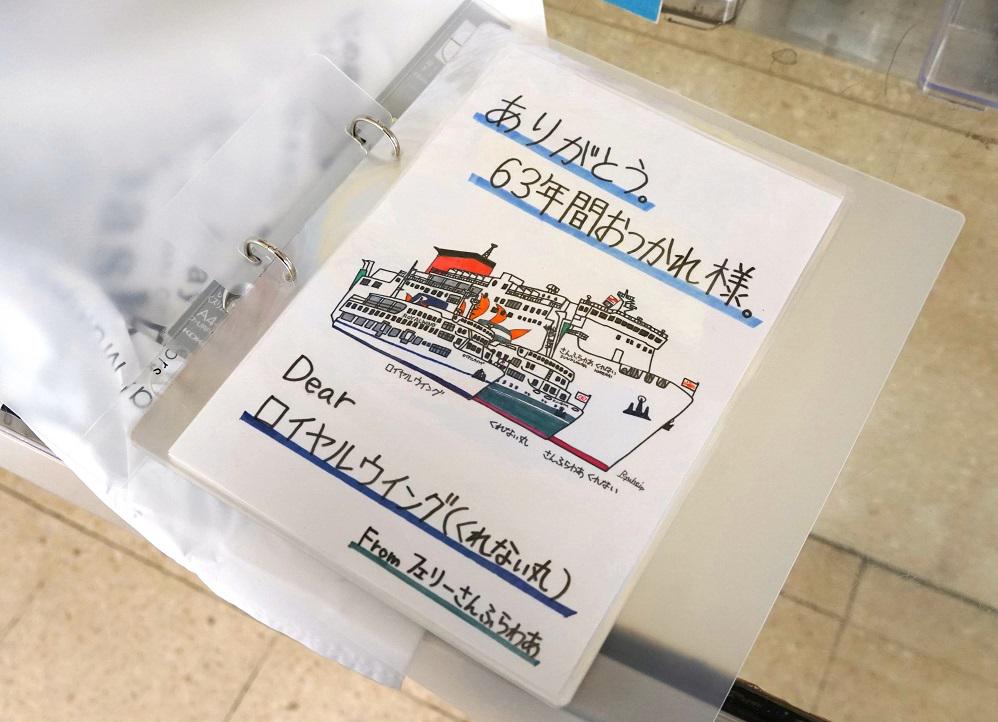 ありがとう。
63年間おつかれ様。
さんふらわあ くれない
ロイヤルウイング
くれない丸
さんふらわあ くれない
Dear
ロイヤルウイング(くれない丸)
From フェリーさんふらわあ
A4